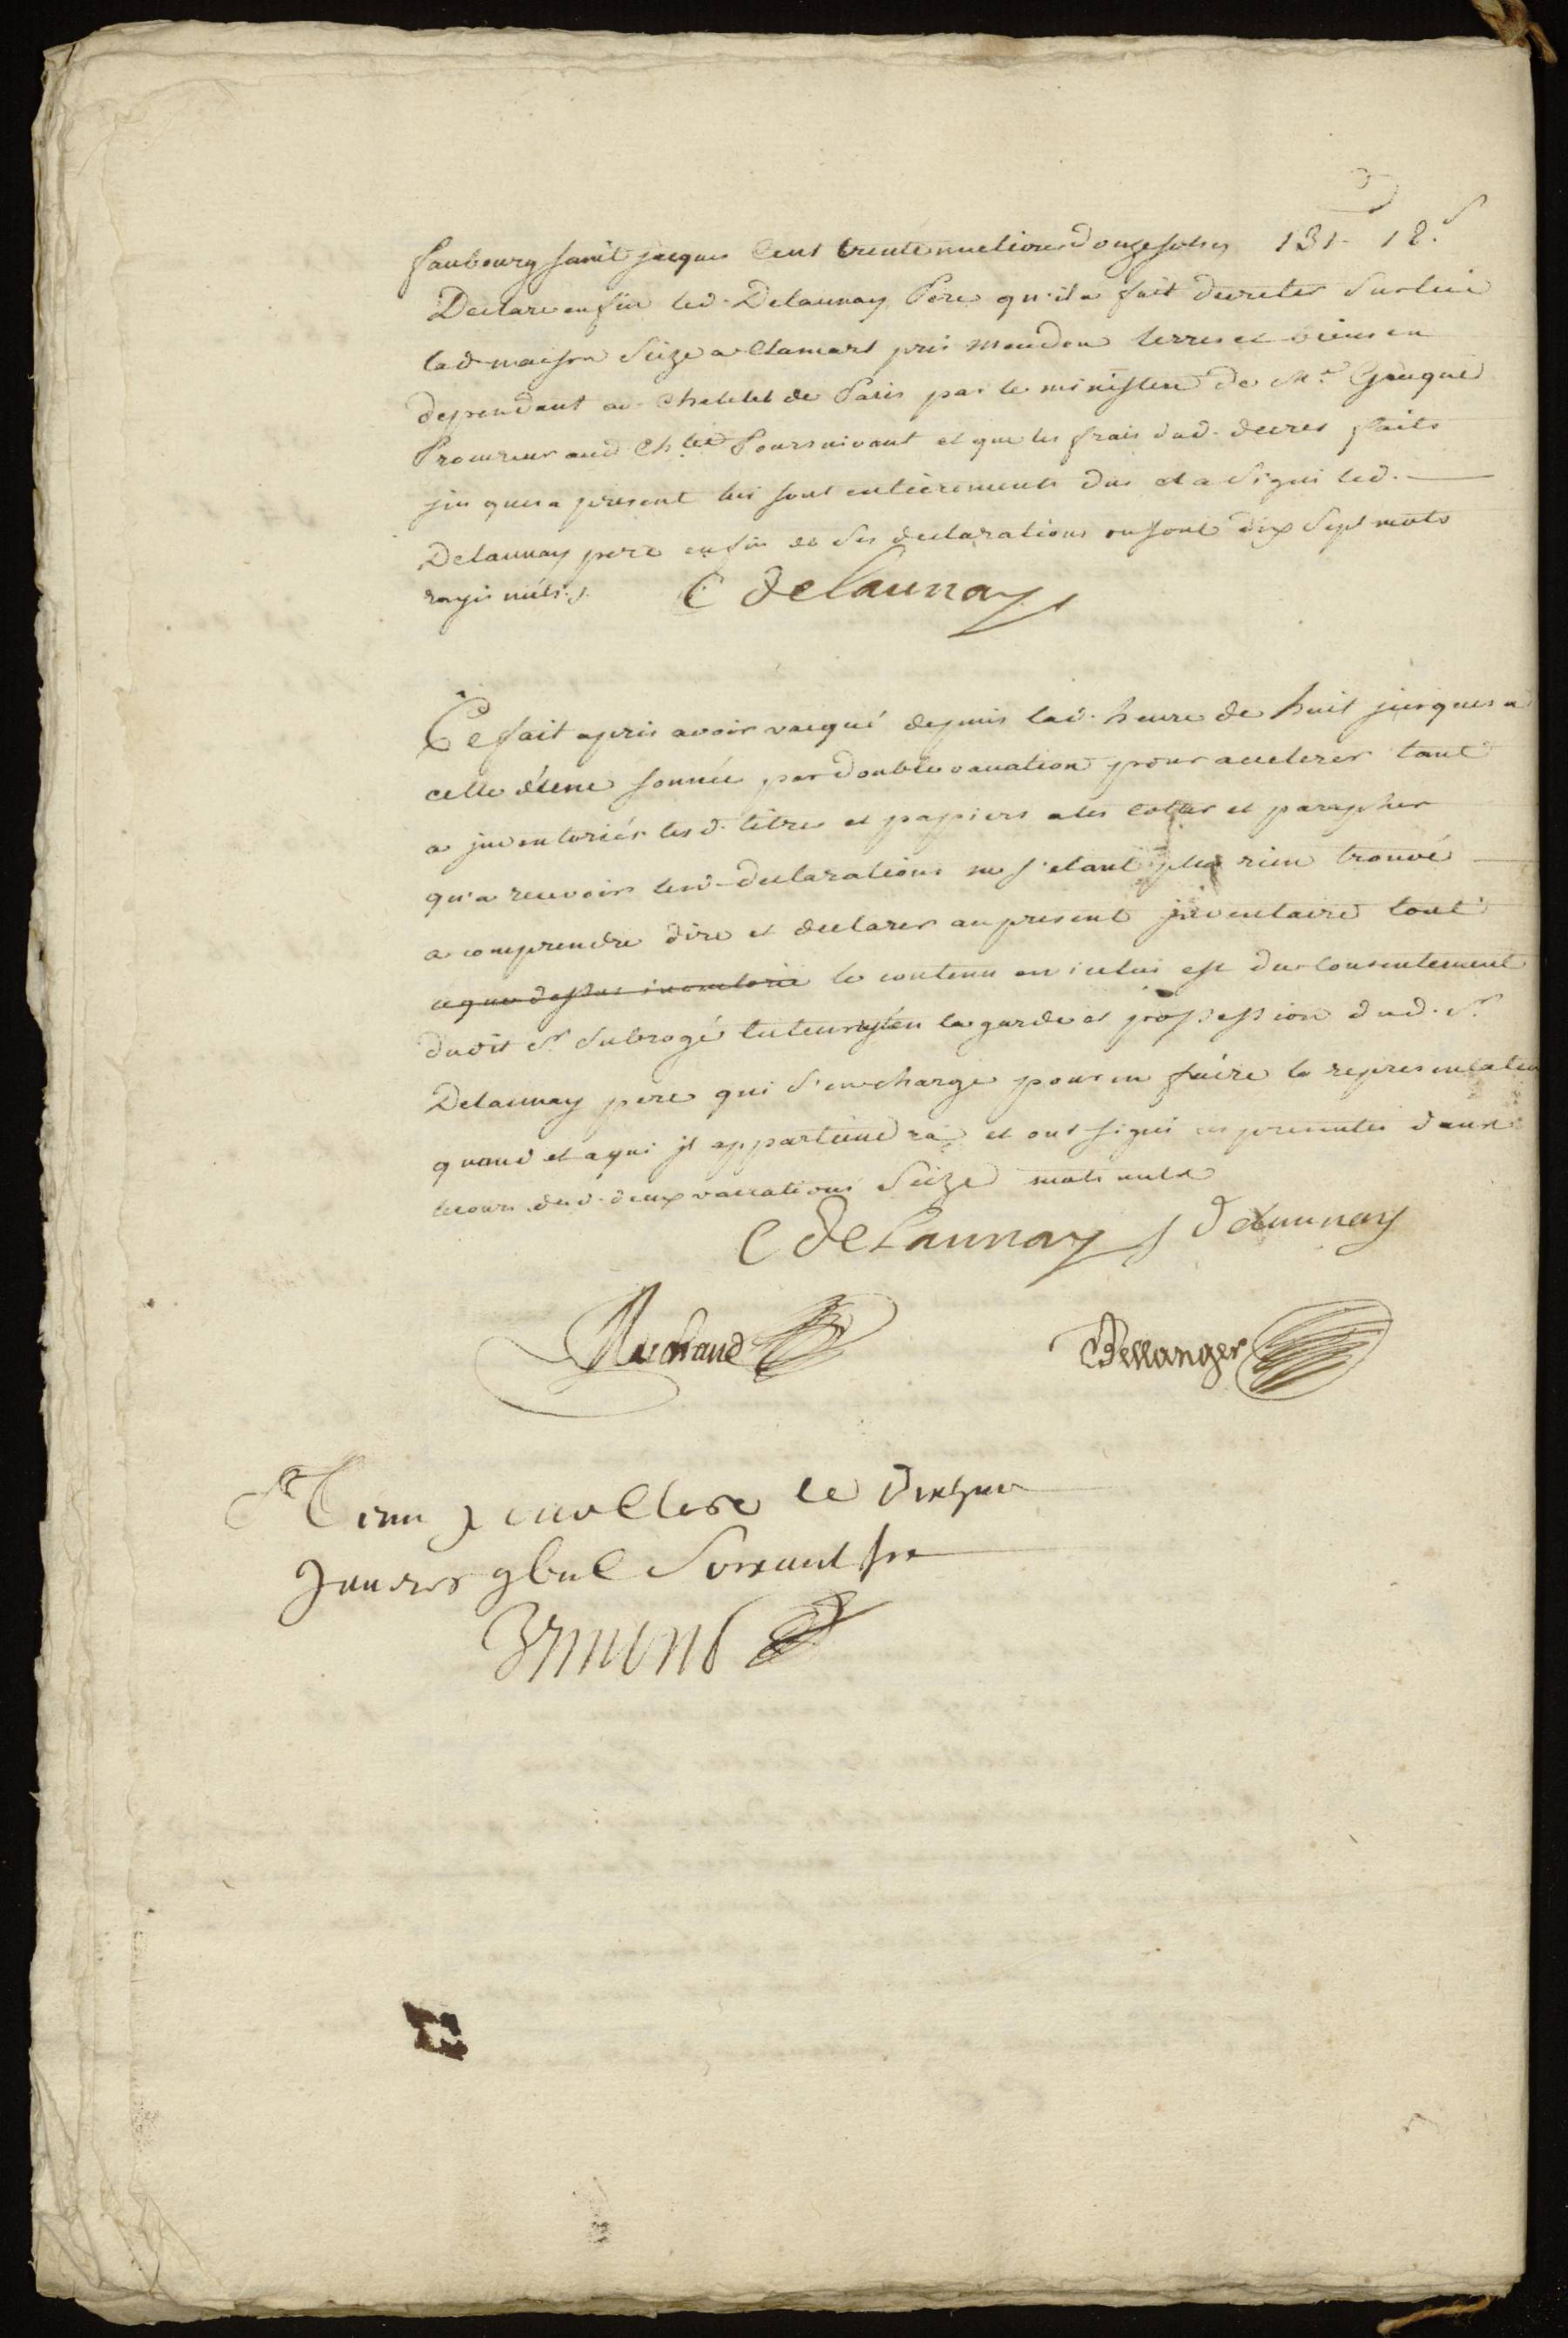 faubourg saint jacques Cent trente une livres douze sols cy 131 - 12.s
Declare enfin led. Delaunay Pere qu'il a fait decreter sur lui
lad. maison Size a Clamart près Meudon terres et biens en
dependant au Chatelet de Paris par le ministere de Me
Procureur aud. Chlet Poursuivant et que les frais dud. decret faits
jusques a present lui sont entierements dus et a Signé led.
Delaunay pere enfin de ses declarations ou sont dix Sept mots
rayés nuls.
C delaunay
Ce fait après avoir vacqué depuis lad. heure de huit jusques a
celle d'une sonnée par double vacation pour accelerer tant
a jnventorier lesd. titres et papiers a les cotter et parapher
qu'a recevoir lesd. declarations ne s'etant plus rien trouvé
a comprendre dire et declarer au present jnventaire tout
ce que dessus inventorié le contenu en icelui est du consentement
dudit Sr. Subrogé tuteur resté en la garde et possession dud. Sr.
Delaunay pere qui s'en charge pour en faire la representation
quand et a qui jl appartiendra et ont signé ces presentes dans
le cours desd. deux vaccations Seize mots nuls
C deLaunay J delaunay
Bellanger